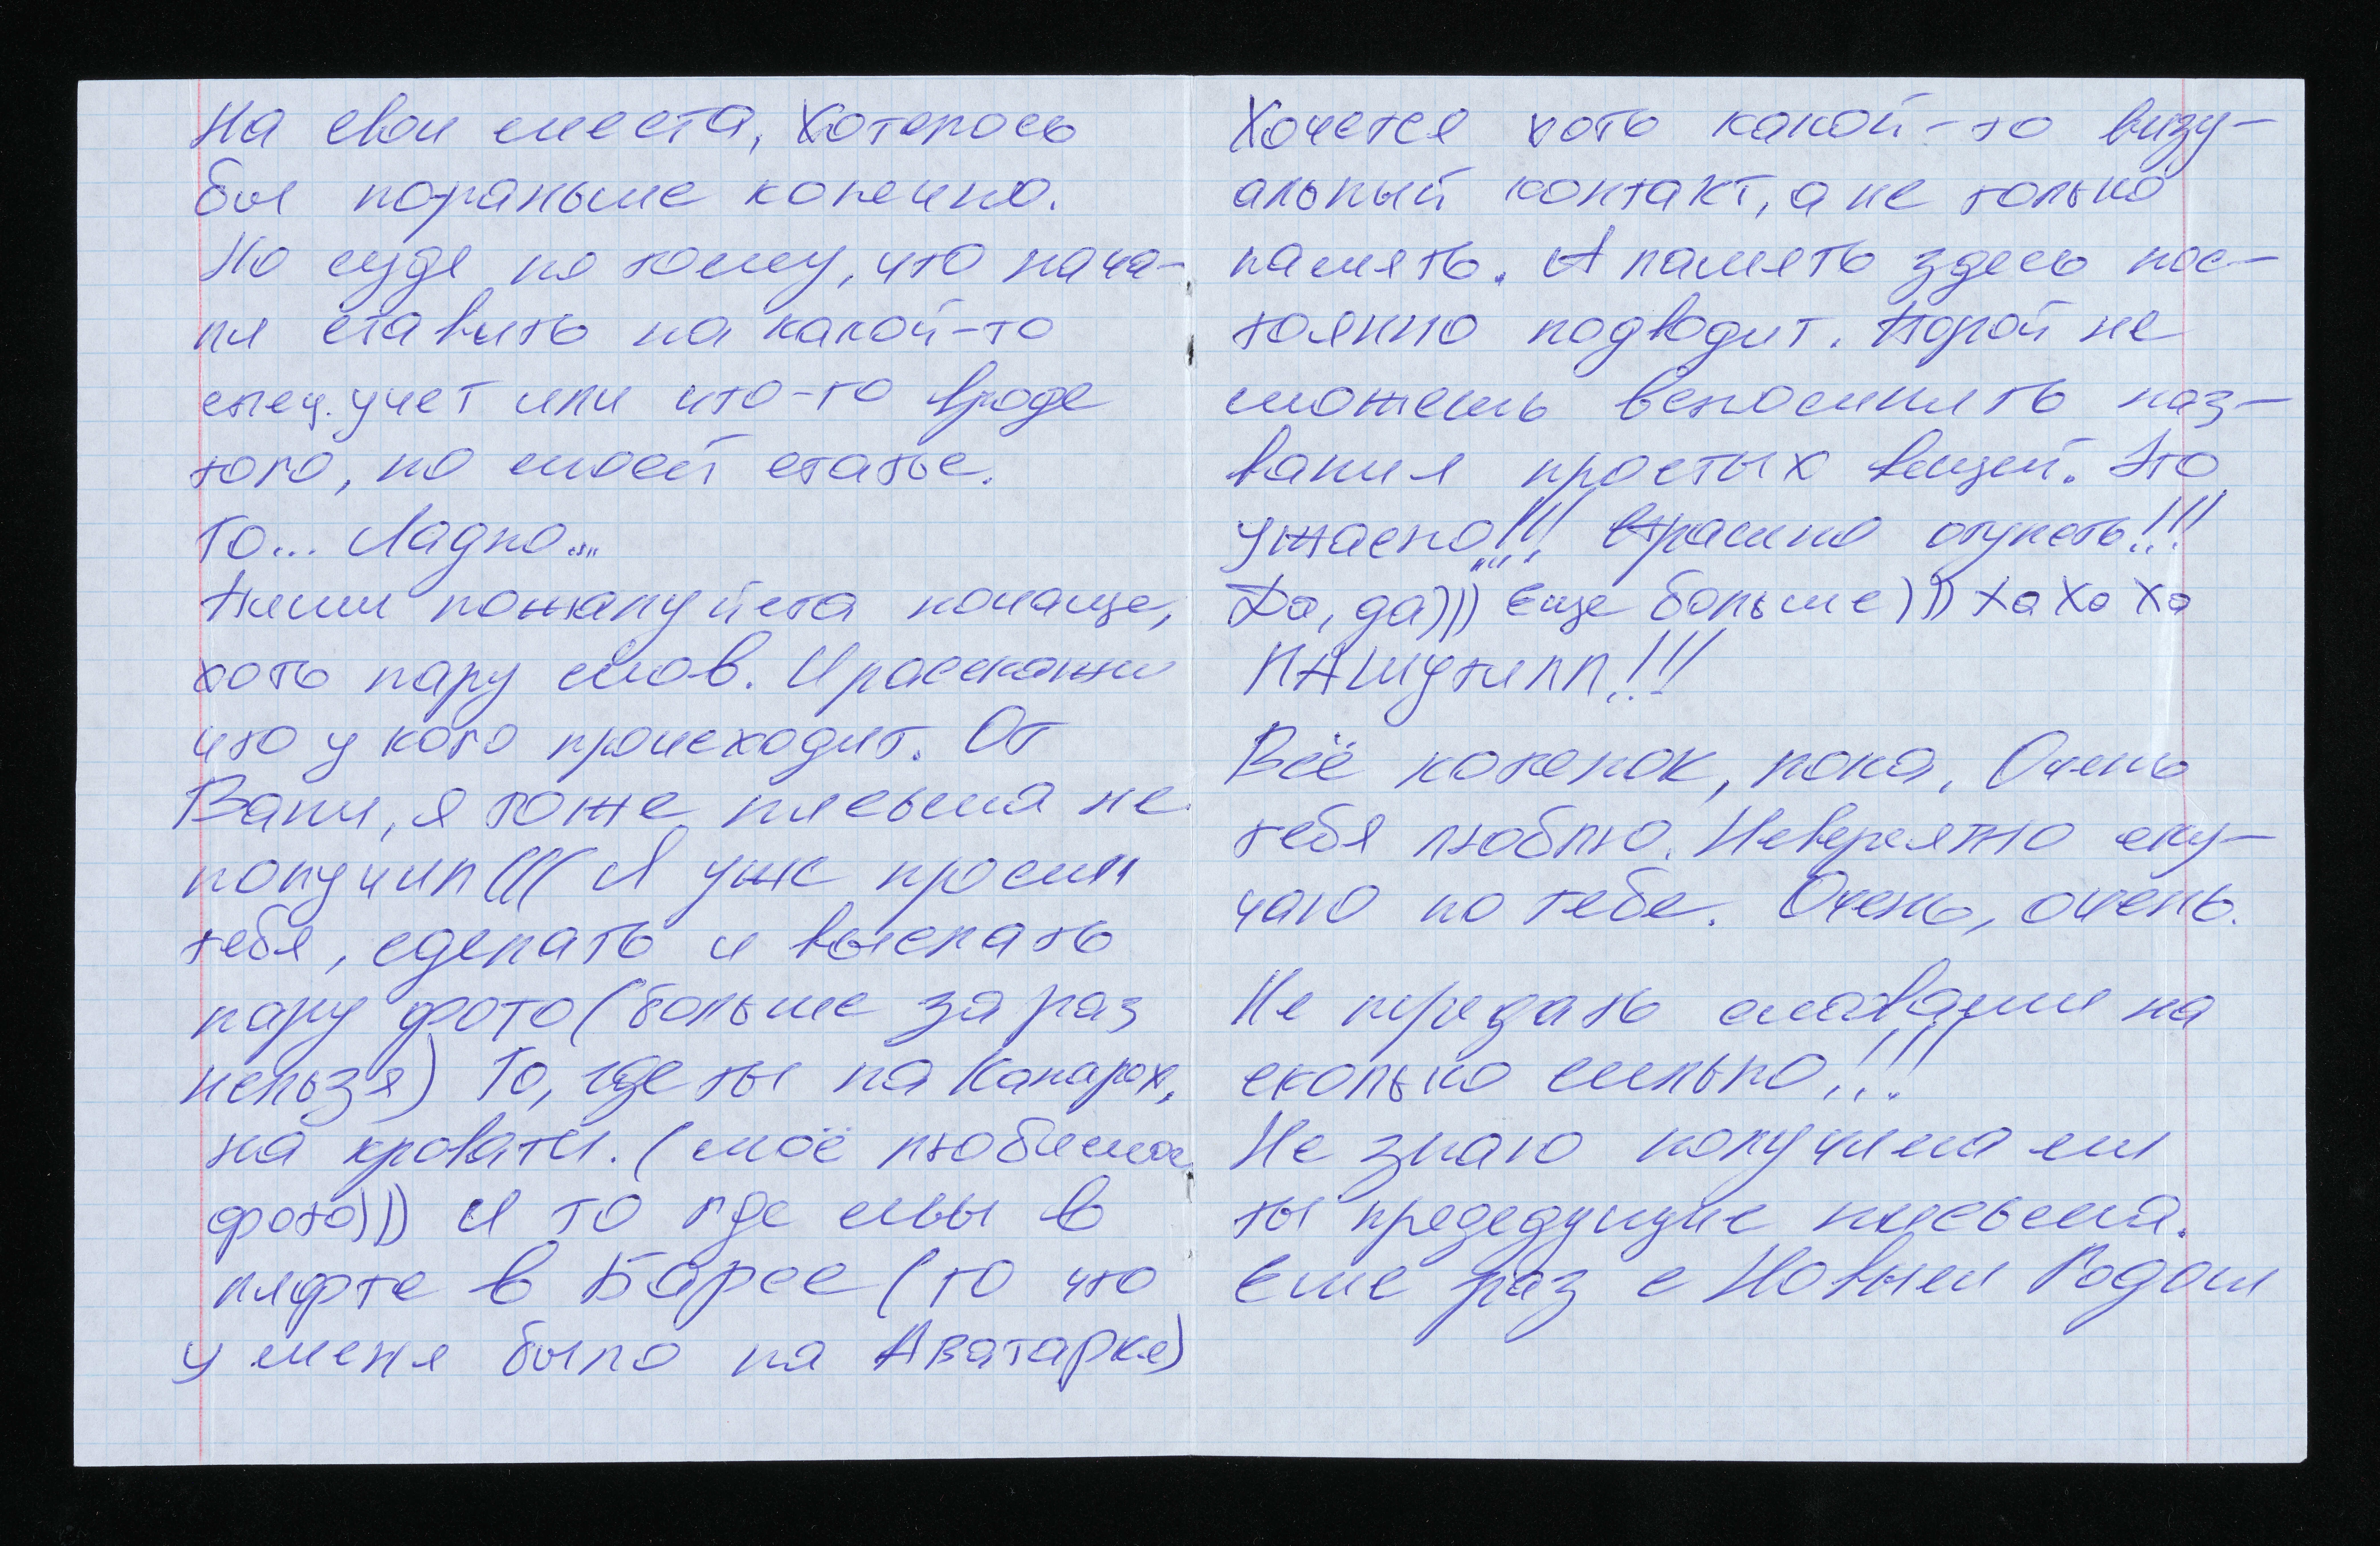 На свои места, Хотелось
бы пораньше конечно.
Но судя по тому, что нача-
ли ставить на какой-то
спец. учет или что-то вроде
того, по моей статье.
То... Ладно...
Пиши пожалуйста почаще,
хоть пару слов. И расскажи
что у кого происходит. От
Вани, я тоже письма не
получил((( Я уже просил
тебя, сделать и выслать
пару фото (больше за раз
нельзя) То, где ты на Канарах,
на кровати. (моё любимое
фото))) И то где мы в
лифте в Барсе (то что
у меня было на Аватарке)
Хочется хоть какой-то визу-
альный контакт, а не только
память. А память здесь пос-
тоянно подводит. Порой не
можешь вспомнить наз-
вания простых вещей. Это
ужасно!!! Страшно отупеть!!!
Да, да))) еще больше))) Ха Ха Ха
ПАШутилл!!!
Всё котенок, пока. Очень
тебя люблю. Невероятно ску-
чаю по тебе. Очень, очень.
Не передать словами на
сколько сильно!!!
Не знаю получила ли
ты предедущие письма.
Еще раз с Новым Годом